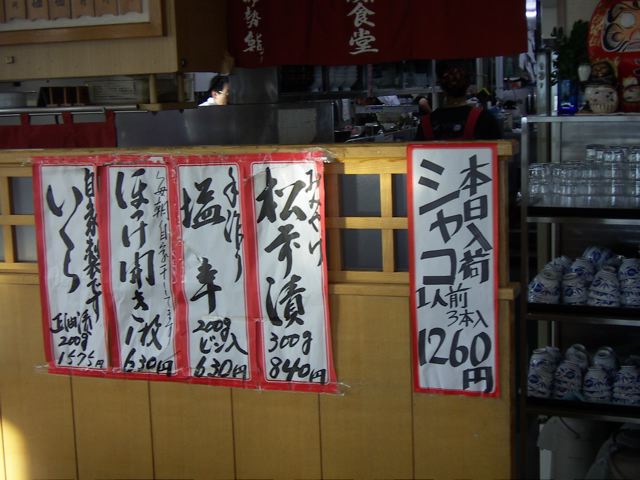 食堂
本日入荷
シャコ
1人前
3本入
1260円
おみやげ
松前漬
300g
840円
手作り
塩辛
200g
ビン入
630円
ほっけ開き
1枚
630円
自家製です
いくら
正油漬
200g
1575円